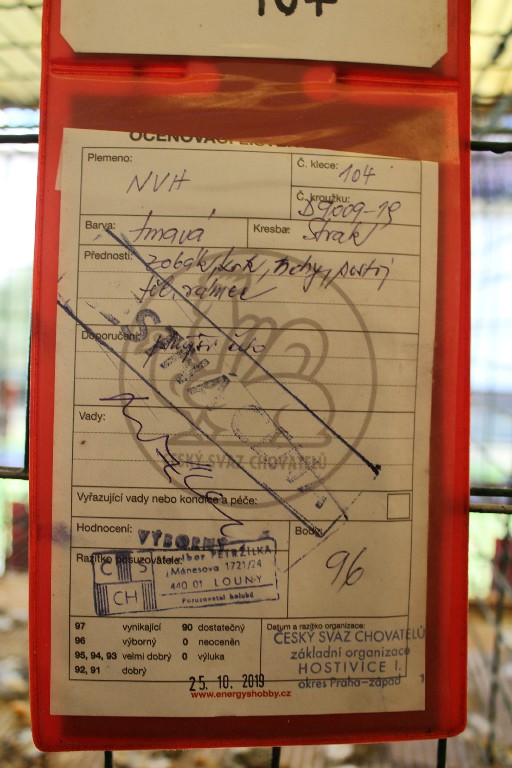 107
OCEŇOVACÍ LÍSTEK
Plemeno: NVH
Č. klece: 104
Č. kroužku: D9009-19
Barva: tmavá
Kresba: Strak
Přednosti: zobák, krk,
rámec
Doporučení:
ČESKÝ SVAZ CHOVATELŮ
Vady:
Vyřazující vady nebo kondice a péče:
Hodnocení: VÝBORNÝ
Body: 96
Razítko posuzovatele:
Libor PETRŽILKA
Mánesova 1721/24
440 01 LOUNY
Posuzovatel holubů
ČS
CH
97 vynikající 90 dostatečný
96 výborný 0 neoceněn
95, 94, 93 velmi dobrý 0 výluka
92, 91 dobrý
Datum a razítko organizace:
ČESKÝ SVAZ CHOVATELŮ
základní organizace
HOSTIVICE I.
okres Praha-západ
25. 10. 2019
www.energyshobby.cz